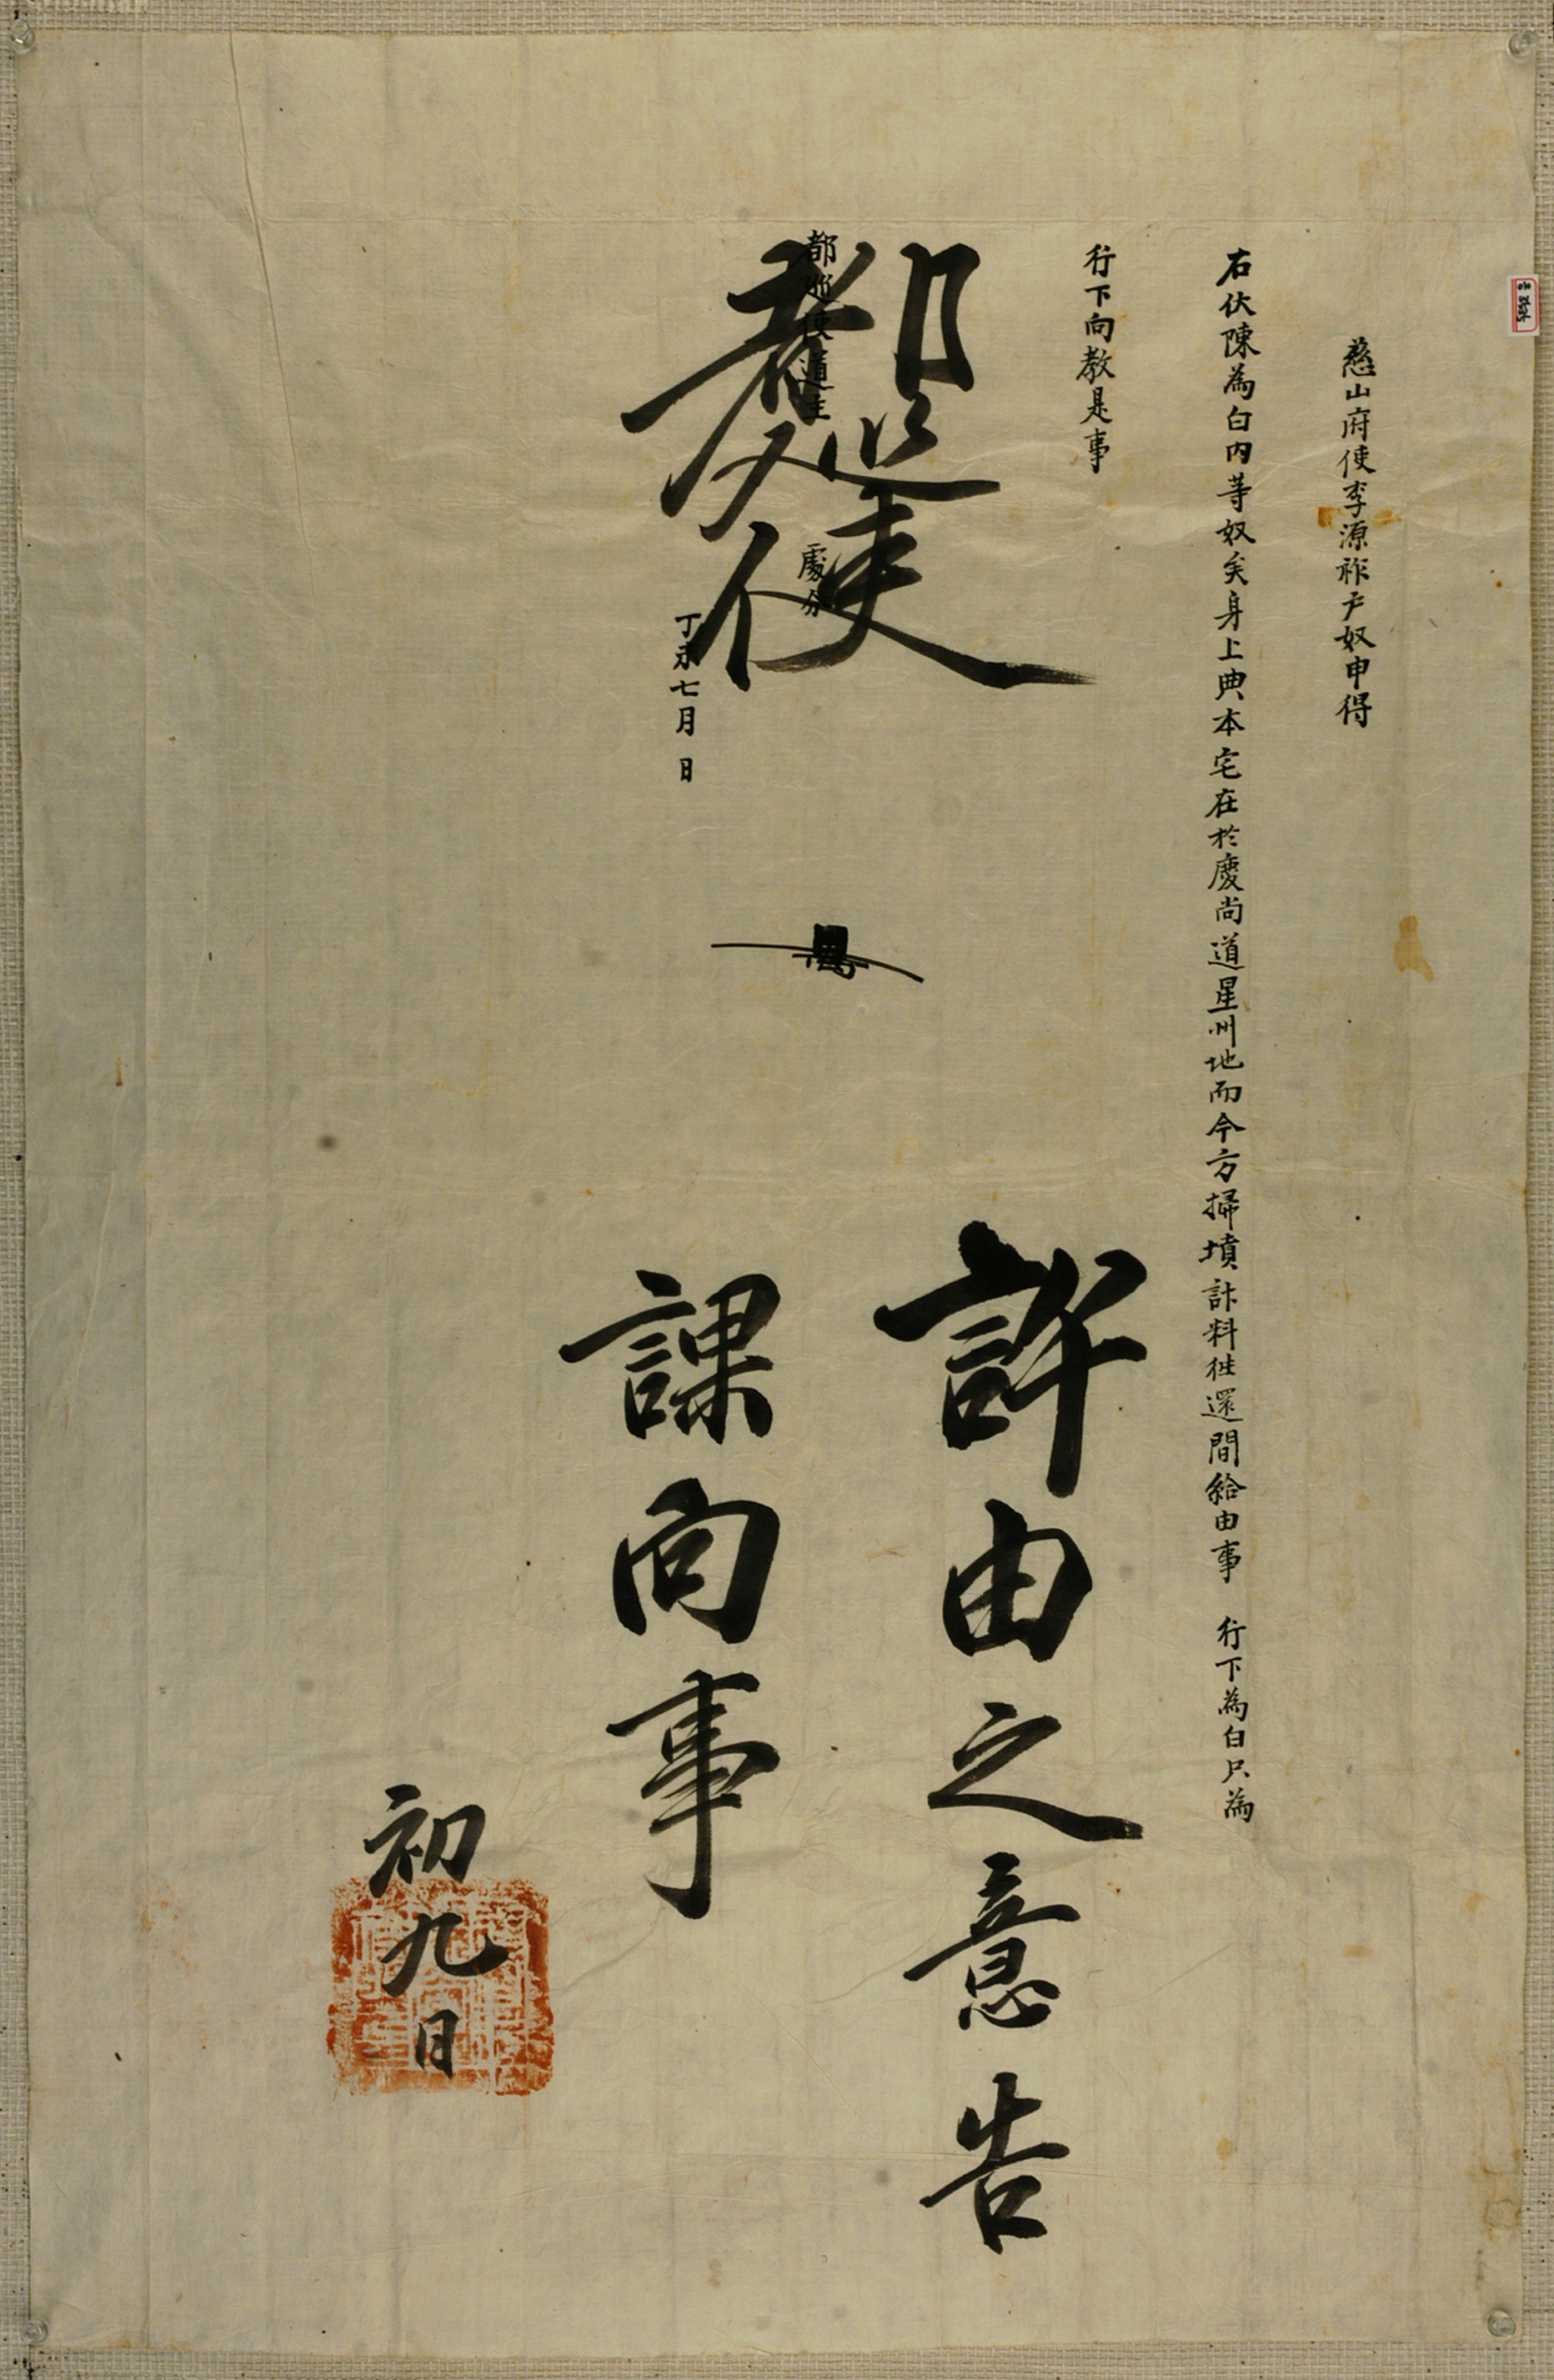 慈山府使李源祚戶奴申得
右伏陳為白內等奴矣身上典本宅在於慶尚道星州地而今方掃墳計料徃還間給由事 行下為白只為
行下向教是事
都巡使道主 處分
丁未七月 日
都巡使
許由之意告
課向事
初九日